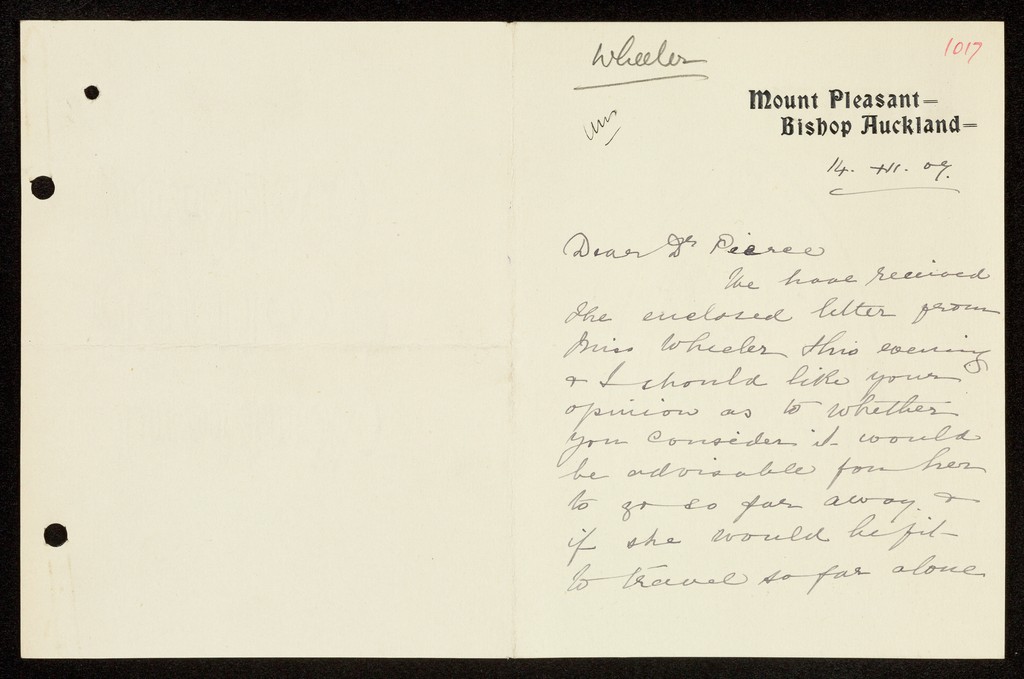 Wheeler
1017
Ans
Mount Pleasant
Bishop Auckland
14. XII. 07.
Dear Dr Pierce
We have received
the enclosed letter from
Miss Wheeler this evening
& I should like your
opinion as to whether
you consider it would
be advisable for her
to go so far away &
if she would be fit
to travel so far alone